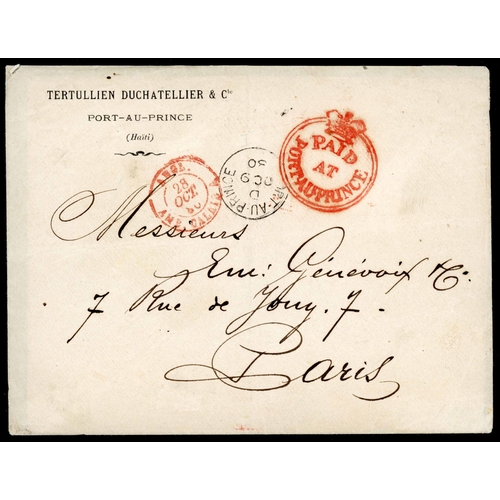 TERTULLIEN DUCHATELLIER & Cie
PORT-AU-PRINCE
(Haïti)
PAID
AT
PORT-AU-PRINCE
PORT-AU-PRINCE
D
OC 9
80
ANGL.
28
OCT
80
AMB. CALAIS
Messieurs
Emi: Génévoix & Co.
7 Rue de Jouy. 7.
Paris